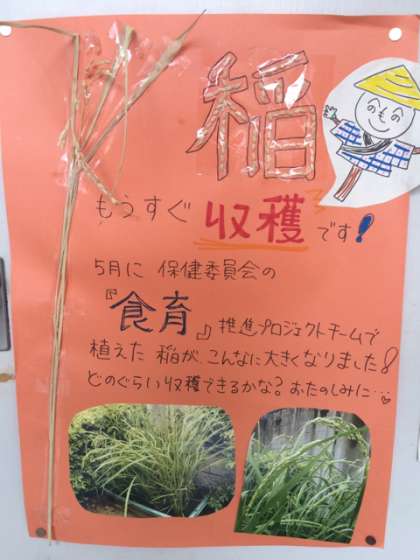 稲
もうすぐ 収穫です!
5月に 保健委員会の
『食育』推進プロジェクトチームで
植えた 稲が、こんなに大きくなりました!
どのぐらい収穫できるかな? おたのしみに…♡